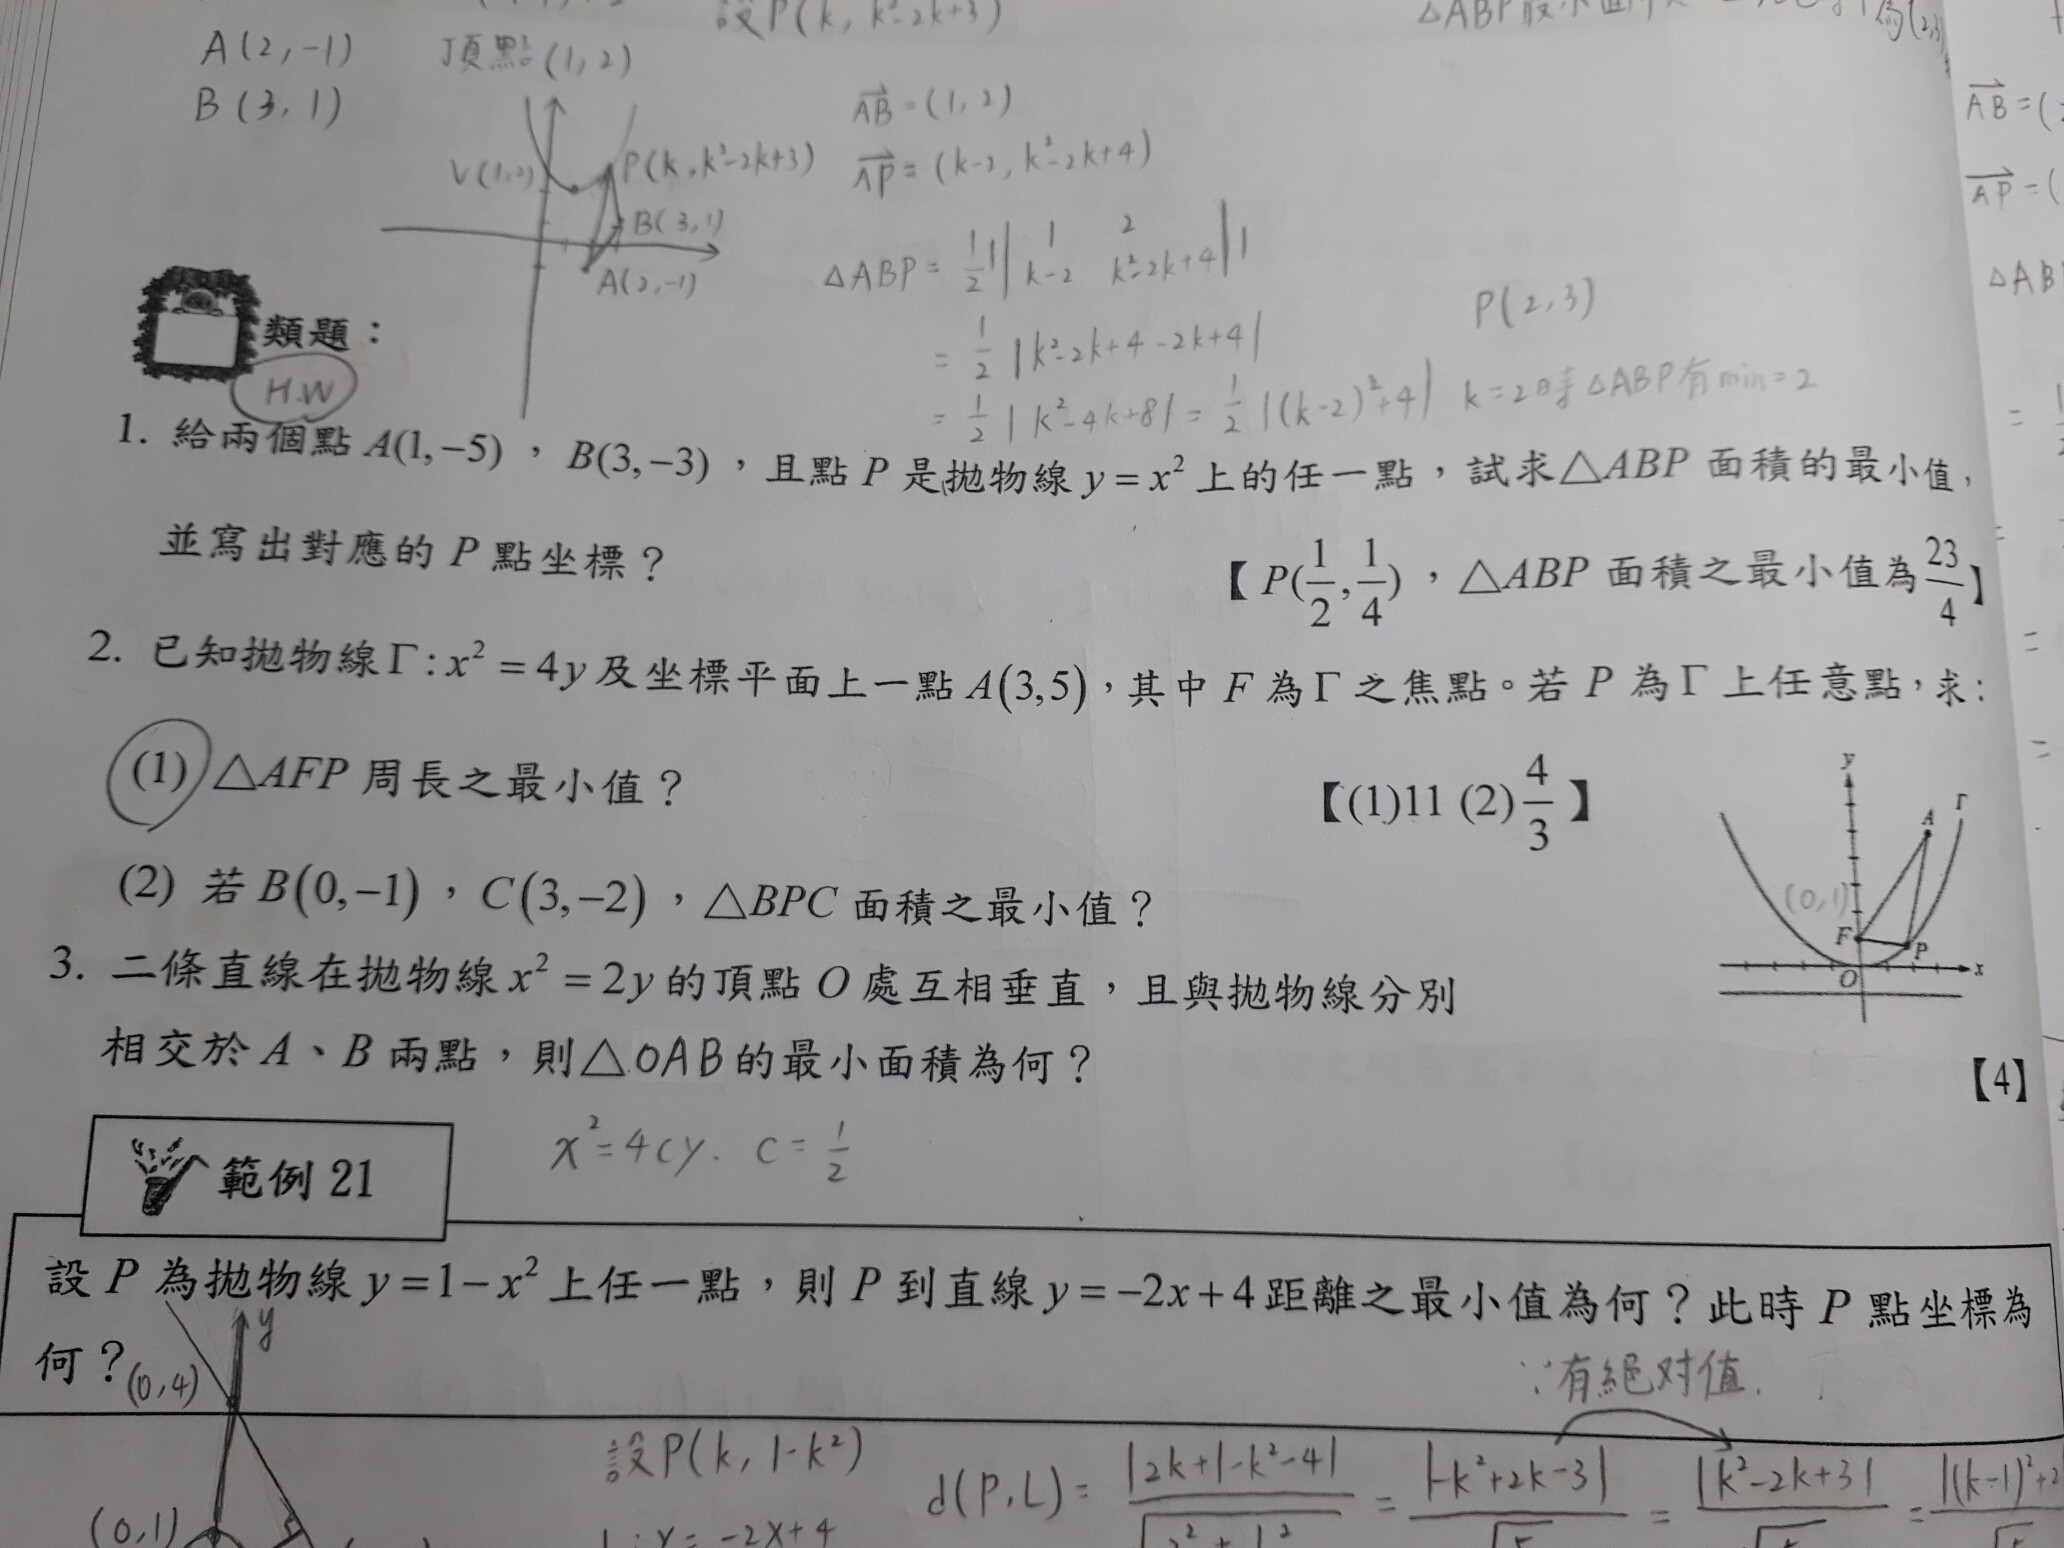 設P(k, k²-2k+3)
A(2,-1)
頂點(1,2)
B(3,1)
V(1,2)
P(k,k²-2k+3)
B(3,1)
A(2,-1)
AB=(1,2)
AP=(k-2, k²-2k+4)
△ABP= 1/2 || 1 2 k-2 k²-2k+4 ||
= 1/2 |k²-2k+4-2k+4|
= 1/2 |k²-4k+8| = 1/2 |(k-2)²+4| k=2時△ABP有min=2
P(2,3)
AB=(
AP=(
△AB
類題：
H.W
1. 給兩個點 A(1,−5)，B(3,−3)，且點 P 是拋物線 y = x² 上的任一點，試求△ABP 面積的最小值，
並寫出對應的 P 點坐標？ 【P(1/2,1/4)，△ABP 面積之最小值為23/4】
2. 已知拋物線Γ: x² = 4y 及坐標平面上一點 A(3,5)，其中 F 為Γ 之焦點。若 P 為Γ 上任意點，求：
(1) △AFP 周長之最小值？ 【(1)11 (2)4/3】
(2) 若 B(0,−1)，C(3,−2)，△BPC 面積之最小值？
y
Γ
A
(0,1)
F
P
O
x
3. 二條直線在拋物線 x² = 2y 的頂點 O 處互相垂直，且與拋物線分別
相交於 A、B 兩點，則△OAB的最小面積為何？ 【4】
x²=4cy. c= 1/2
範例 21
設 P 為拋物線 y = 1 − x² 上任一點，則 P 到直線 y = −2x + 4 距離之最小值為何？此時 P 點坐標為
何？
(0,4)
y
∵有絕对值.
設P(k, 1-k²)
d(P,L)= |2k+1-k²-4| / √2²+1² = |-k²+2k-3| / √5 = |k²-2k+3| / √5 = |(k-1)²+2
(0,1)
L:y=-2x+4